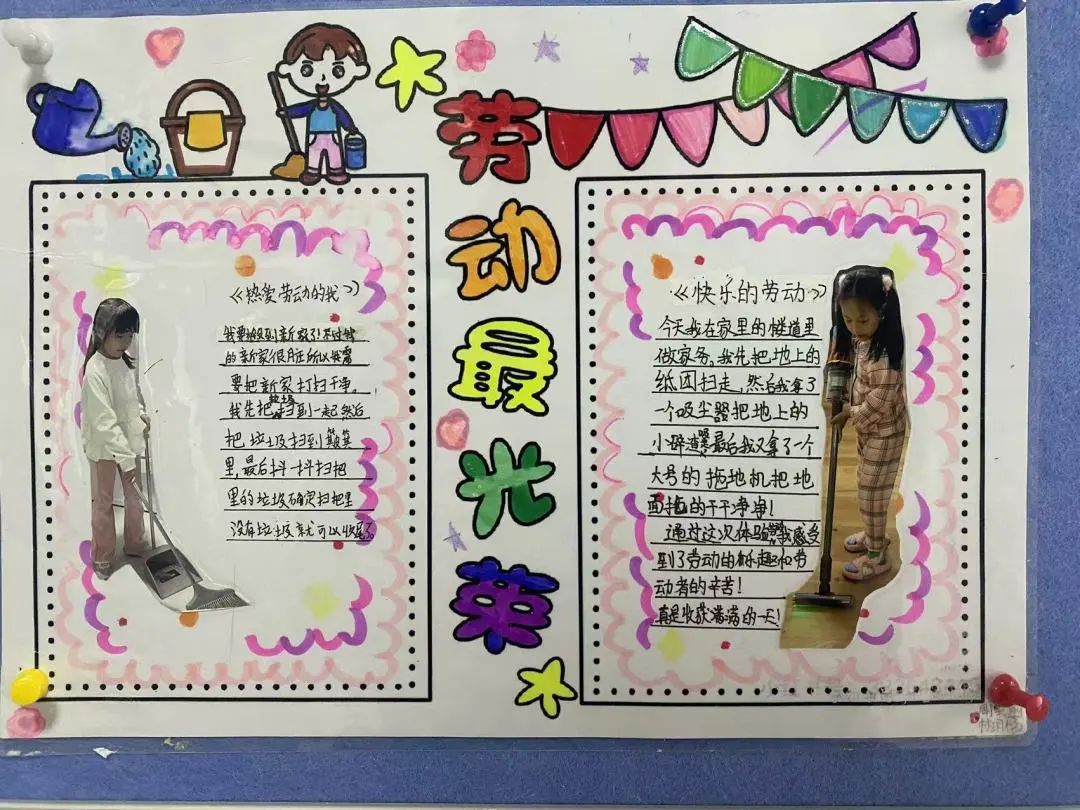 劳动最光荣
《热爱劳动的我》
我要搬到新家了！不过我
的新家很脏所以我需
要把新家打扫干净。
我先把垃圾扫到一起然后
把垃圾扫到簸箕
里,最后抖一抖扫把
里的垃圾确定扫把里
没有垃圾就可以收尾了。
《快乐的劳动》
今天我在家里的楼道里
做家务,我先把地上的
纸团扫走,然后我拿了
一个吸尘器把地上的
小碎渣最后我又拿了一个
大号的拖地机把地
面拖的干干净净!
通过这次体验我感受
到了劳动的乐趣和劳
动者的辛苦!
真是收获满满的一天!